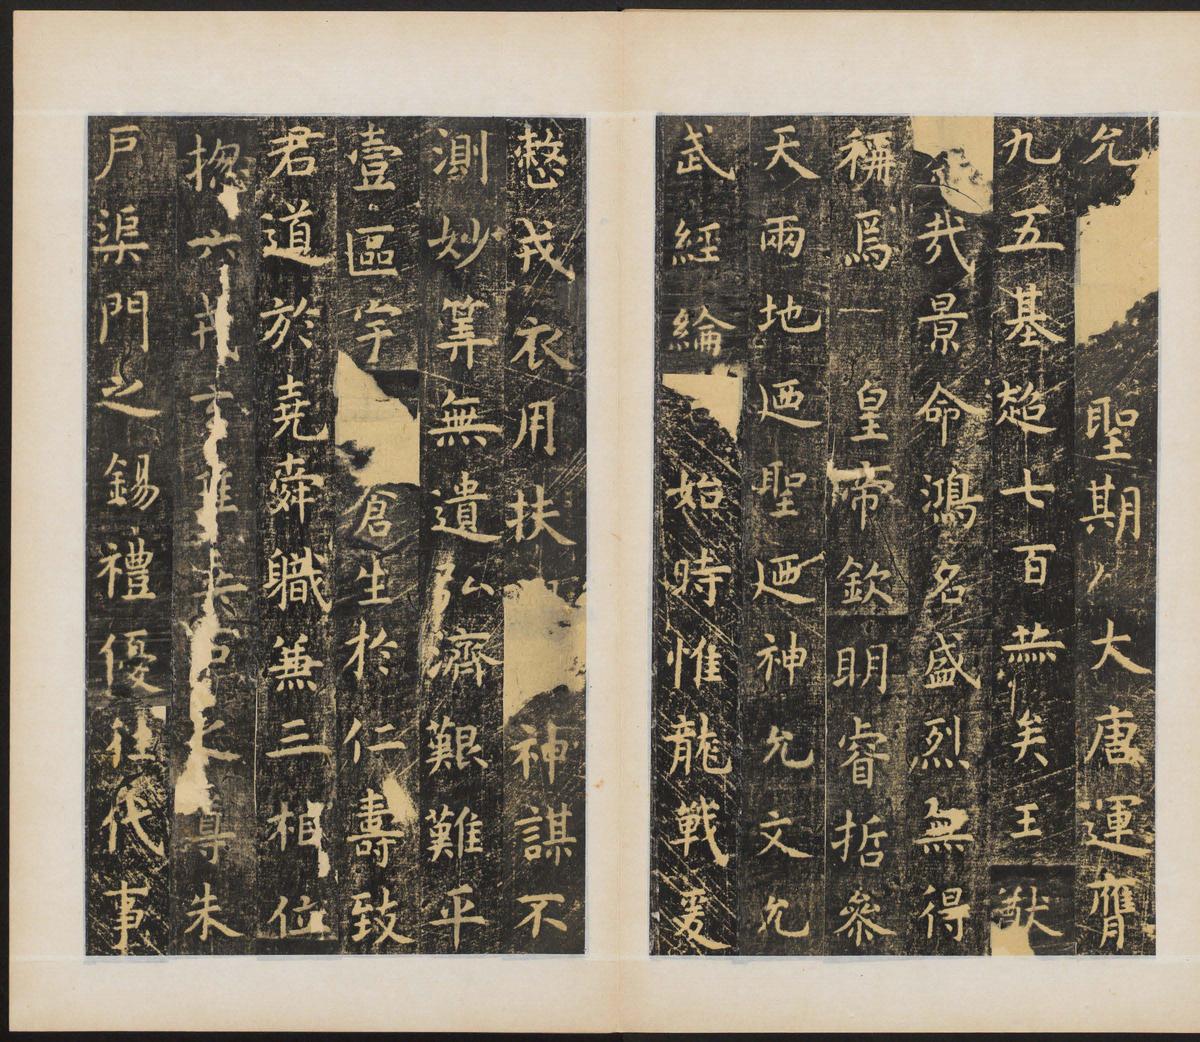 允聖期大唐運膺
九五基超七百赫矣王猷
哉景命鴻名盛烈無得
稱焉一皇帝欽明睿哲參
天兩地迺聖迺神允文允
武經綸始時惟龍戰爰
整戎衣用扶神謀不
測妙筭無遺弘濟艱難平
壹區宇倉生於仁壽致
君道於堯舜職兼三相位
摠六戎玄珪乘石之尊朱
戶渠門之錫禮優往代事